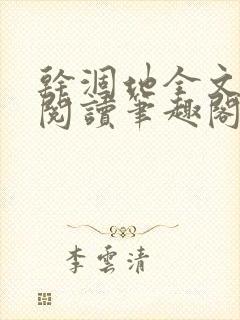 幹涸地全文
閱讀筆趣閣
李雲清